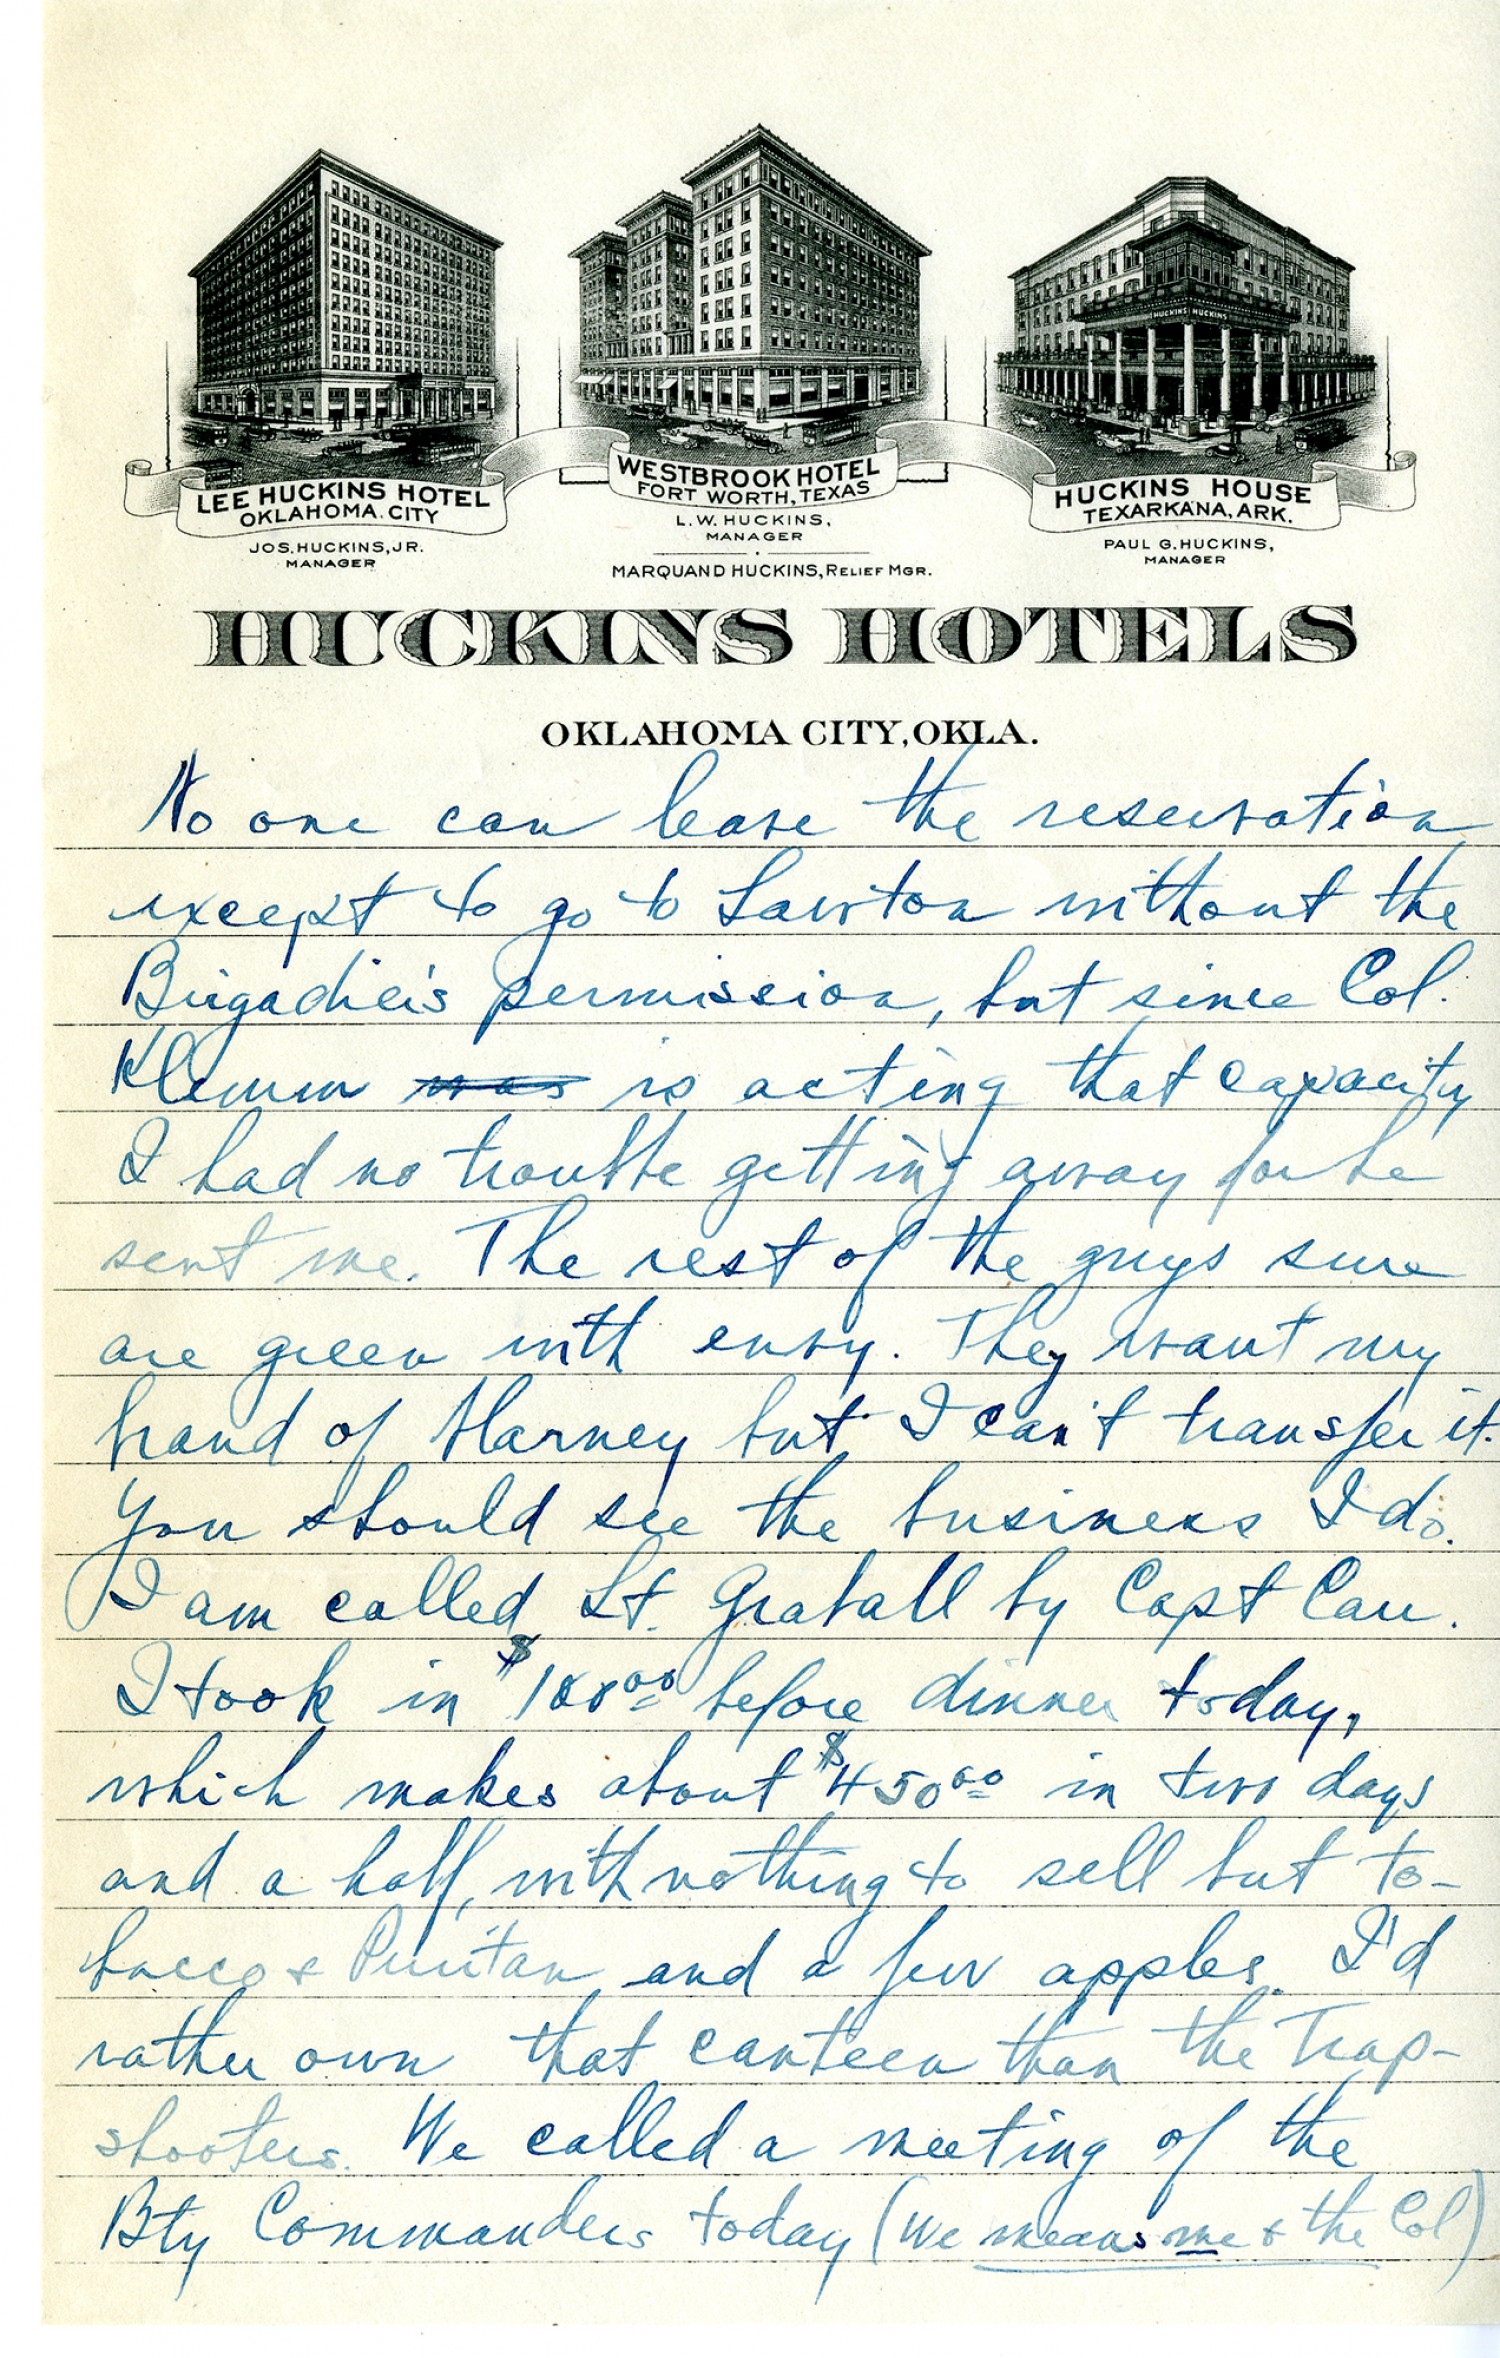 HUCKINS HUCKINS
LEE HUCKINS HOTEL
OKLAHOMA. CITY
JOS. HUCKINS, JR.
MANAGER
WESTBROOK HOTEL
FORT WORTH, TEXAS
L. W. HUCKINS,
MANAGER
MARQUAND HUCKINS, RELIEF MGR.
HUCKINS HOUSE
TEXARKANA, ARK.
PAUL G. HUCKINS,
MANAGER
HUCKINS HOTELS
OKLAHOMA CITY, OKLA.
No one can leave the reservation
except to go to Lawton without the
Brigadier's permission, but since Col.
Klemm was is acting that capacity
I had no trouble getting away for he
sent me. The rest of the guys sure
are green with envy. They want my
brand of blarney but I can't transfer it.
You should see the business I do.
I am called Lt. Graball by Capt Carr.
I took in $100 00 before dinner today,
which makes about $450 00 in two days
and a half, with nothing to sell but to-
bacco & Puritan and a few apples. I'd
rather own that canteen than the Trap-
shooters. We called a meeting of the
Bty Commanders today (We means me & the Col)